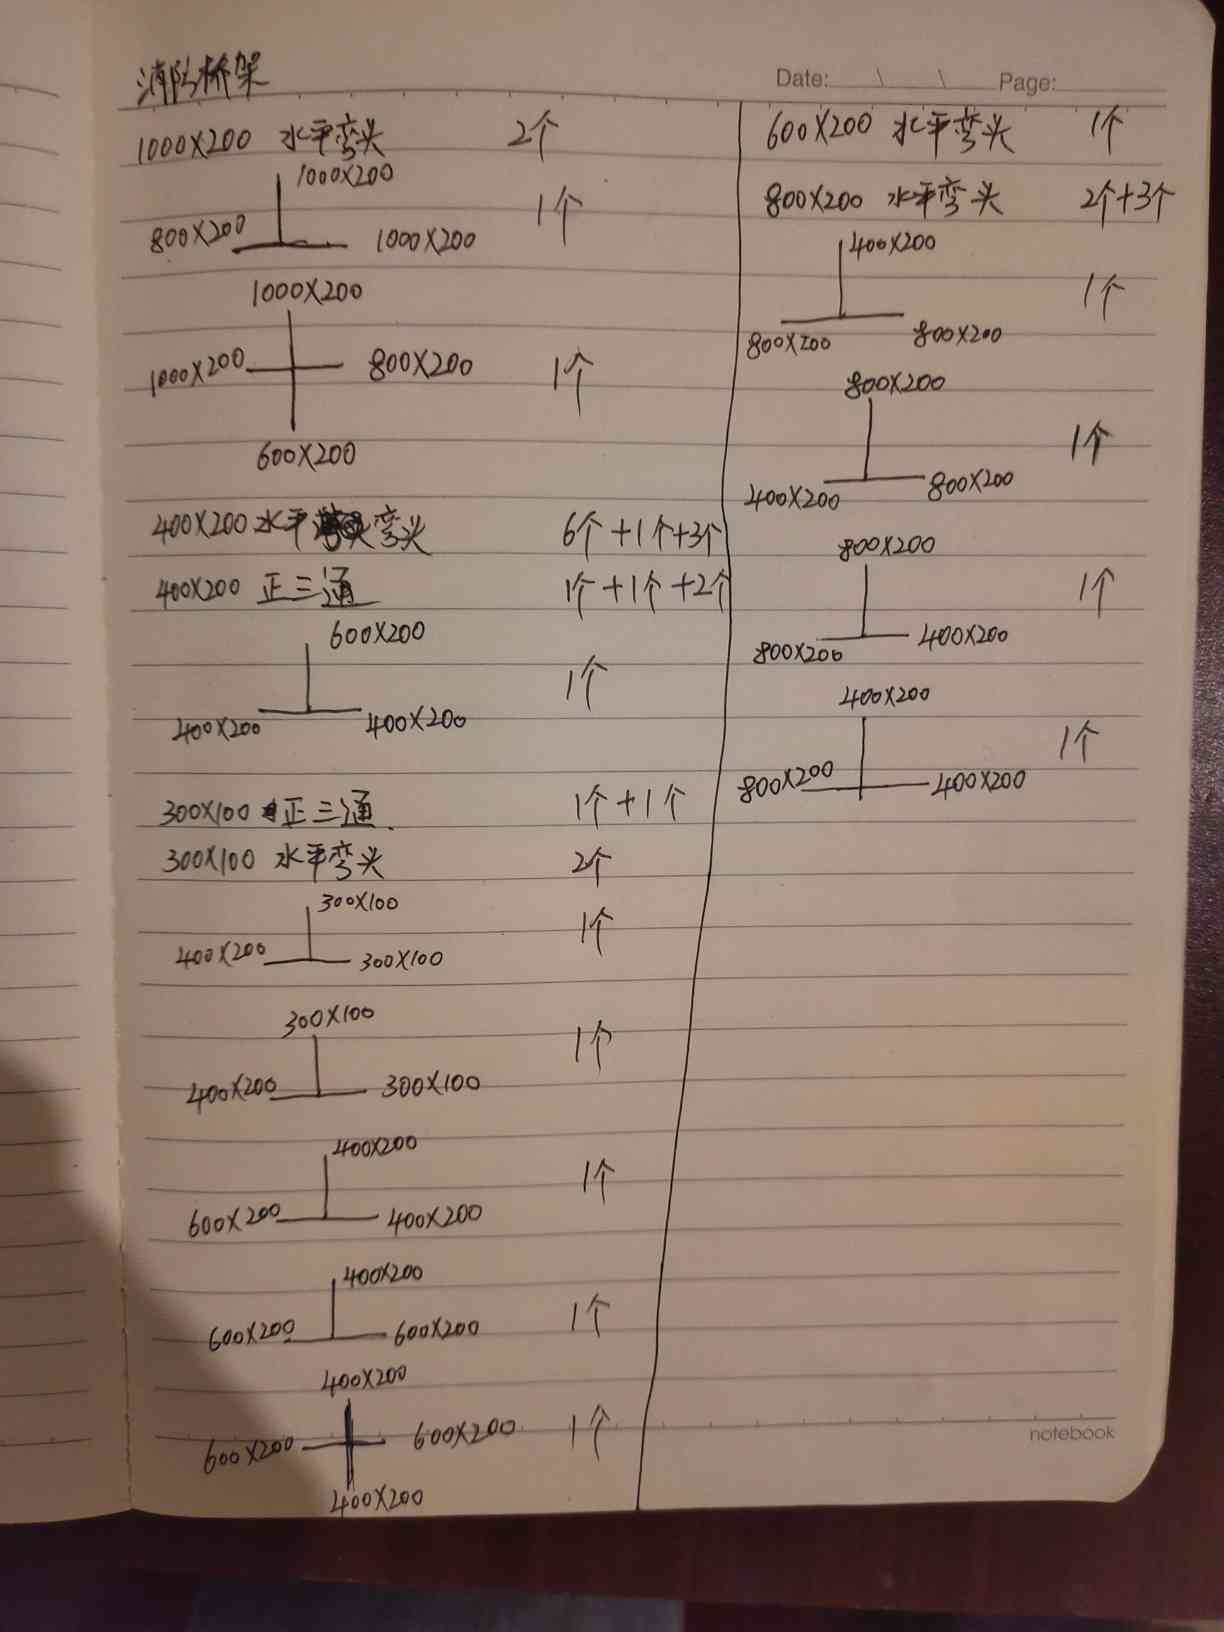 消防桥架
Date: \ \ Page:
1000X200 水平弯头 2个
1000X200
800X200 1000X200 1个
1000X200
1000X200 800X200 1个
600X200
400X200 水平弯头 6个+1个+3个
400X200 正三通 1个+1个+2个
600X200
400X200 400X200 1个
300X100 正三通 1个+1个
300X100 水平弯头 2个
300X100
400X200 300X100 1个
300X100
400X200 300X100 1个
400X200
600X200 400X200 1个
400X200
600X200 600X200 1个
400X200
600X200 600X200 1个
400X200
600X200 水平弯头 1个
800X200 水平弯头 2个+3个
400X200
800X200 800X200 1个
800X200
400X200 800X200 1个
800X200
800X200 400X200 1个
400X200
800X200 400X200 1个
notebook